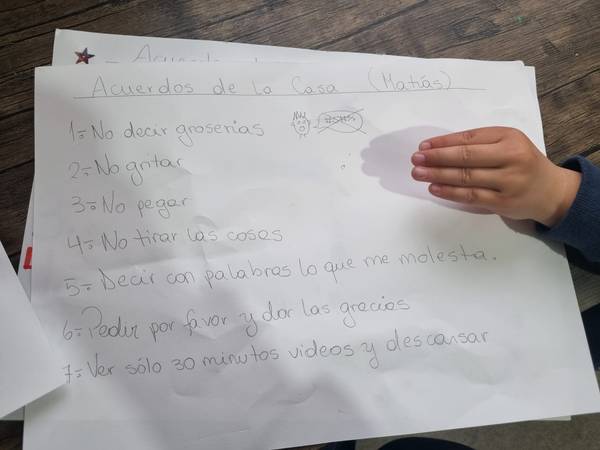 Acuerdos
Acuerdos de la Casa (Matías)
1= No decir groserias
2= No gritar
3= No pegar
4= No tirar las cosas
5= Decir con palabras lo que me molesta.
6= Pedir por favor y dar las gracias
7= Ver sólo 30 minutos videos y descansar